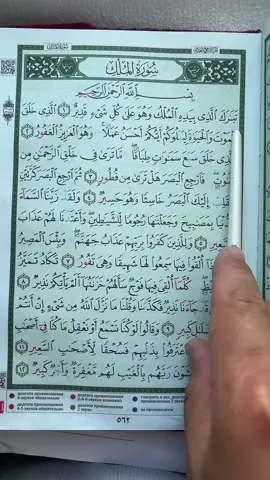 سُورَةُ الْمُلْكِ
بِسْمِ اللَّهِ الرَّحْمَٰنِ الرَّحِيمِ
تَبَارَكَ الَّذِي بِيَدِهِ الْمُلْكُ وَهُوَ عَلَىٰ كُلِّ شَيْءٍ قَدِيرٌ ١ الَّذِي خَلَقَ
الْمَوْتَ وَالْحَيَاةَ لِيَبْلُوَكُمْ أَيُّكُمْ أَحْسَنُ عَمَلًا وَهُوَ الْعَزِيزُ الْغَفُورُ ٢
الَّذِي خَلَقَ سَبْعَ سَمَاوَاتٍ طِبَاقًا مَا تَرَىٰ فِي خَلْقِ الرَّحْمَٰنِ مِنْ
فَارْجِعِ الْبَصَرَ هَلْ تَرَىٰ مِنْ فُطُورٍ ٣ ثُمَّ ارْجِعِ الْبَصَرَ كَرَّتَيْنِ
إِلَيْكَ الْبَصَرُ خَاسِئًا وَهُوَ حَسِيرٌ ٤ وَلَقَدْ زَيَّنَّا السَّمَاءَ
بِمَصَابِيحَ وَجَعَلْنَاهَا رُجُومًا لِلشَّيَاطِينِ وَأَعْتَدْنَا لَهُمْ عَذَابَ
السَّعِيرِ ٥ وَلِلَّذِينَ كَفَرُوا بِرَبِّهِمْ عَذَابُ جَهَنَّمَ وَبِئْسَ الْمَصِيرُ
أُلْقُوا فِيهَا سَمِعُوا لَهَا شَهِيقًا وَهِيَ تَفُورُ ٧ تَكَادُ تَمَيَّزُ
كُلَّمَا أُلْقِيَ فِيهَا فَوْجٌ سَأَلَهُمْ خَزَنَتُهَا أَلَمْ يَأْتِكُمْ نَذِيرٌ ٨
قَدْ جَاءَنَا نَذِيرٌ فَكَذَّبْنَا وَقُلْنَا مَا نَزَّلَ اللَّهُ مِنْ شَيْءٍ إِنْ أَنْتُمْ
كَبِيرٍ ٩ وَقَالُوا لَوْ كُنَّا نَسْمَعُ أَوْ نَعْقِلُ مَا كُنَّا فِي أَصْحَابِ
فَاعْتَرَفُوا بِذَنْبِهِمْ فَسُحْقًا لِأَصْحَابِ السَّعِيرِ ١١
يَخْشَوْنَ رَبَّهُمْ بِالْغَيْبِ لَهُمْ مَغْفِرَةٌ وَأَجْرٌ كَبِيرٌ ١٢
٥٦٢